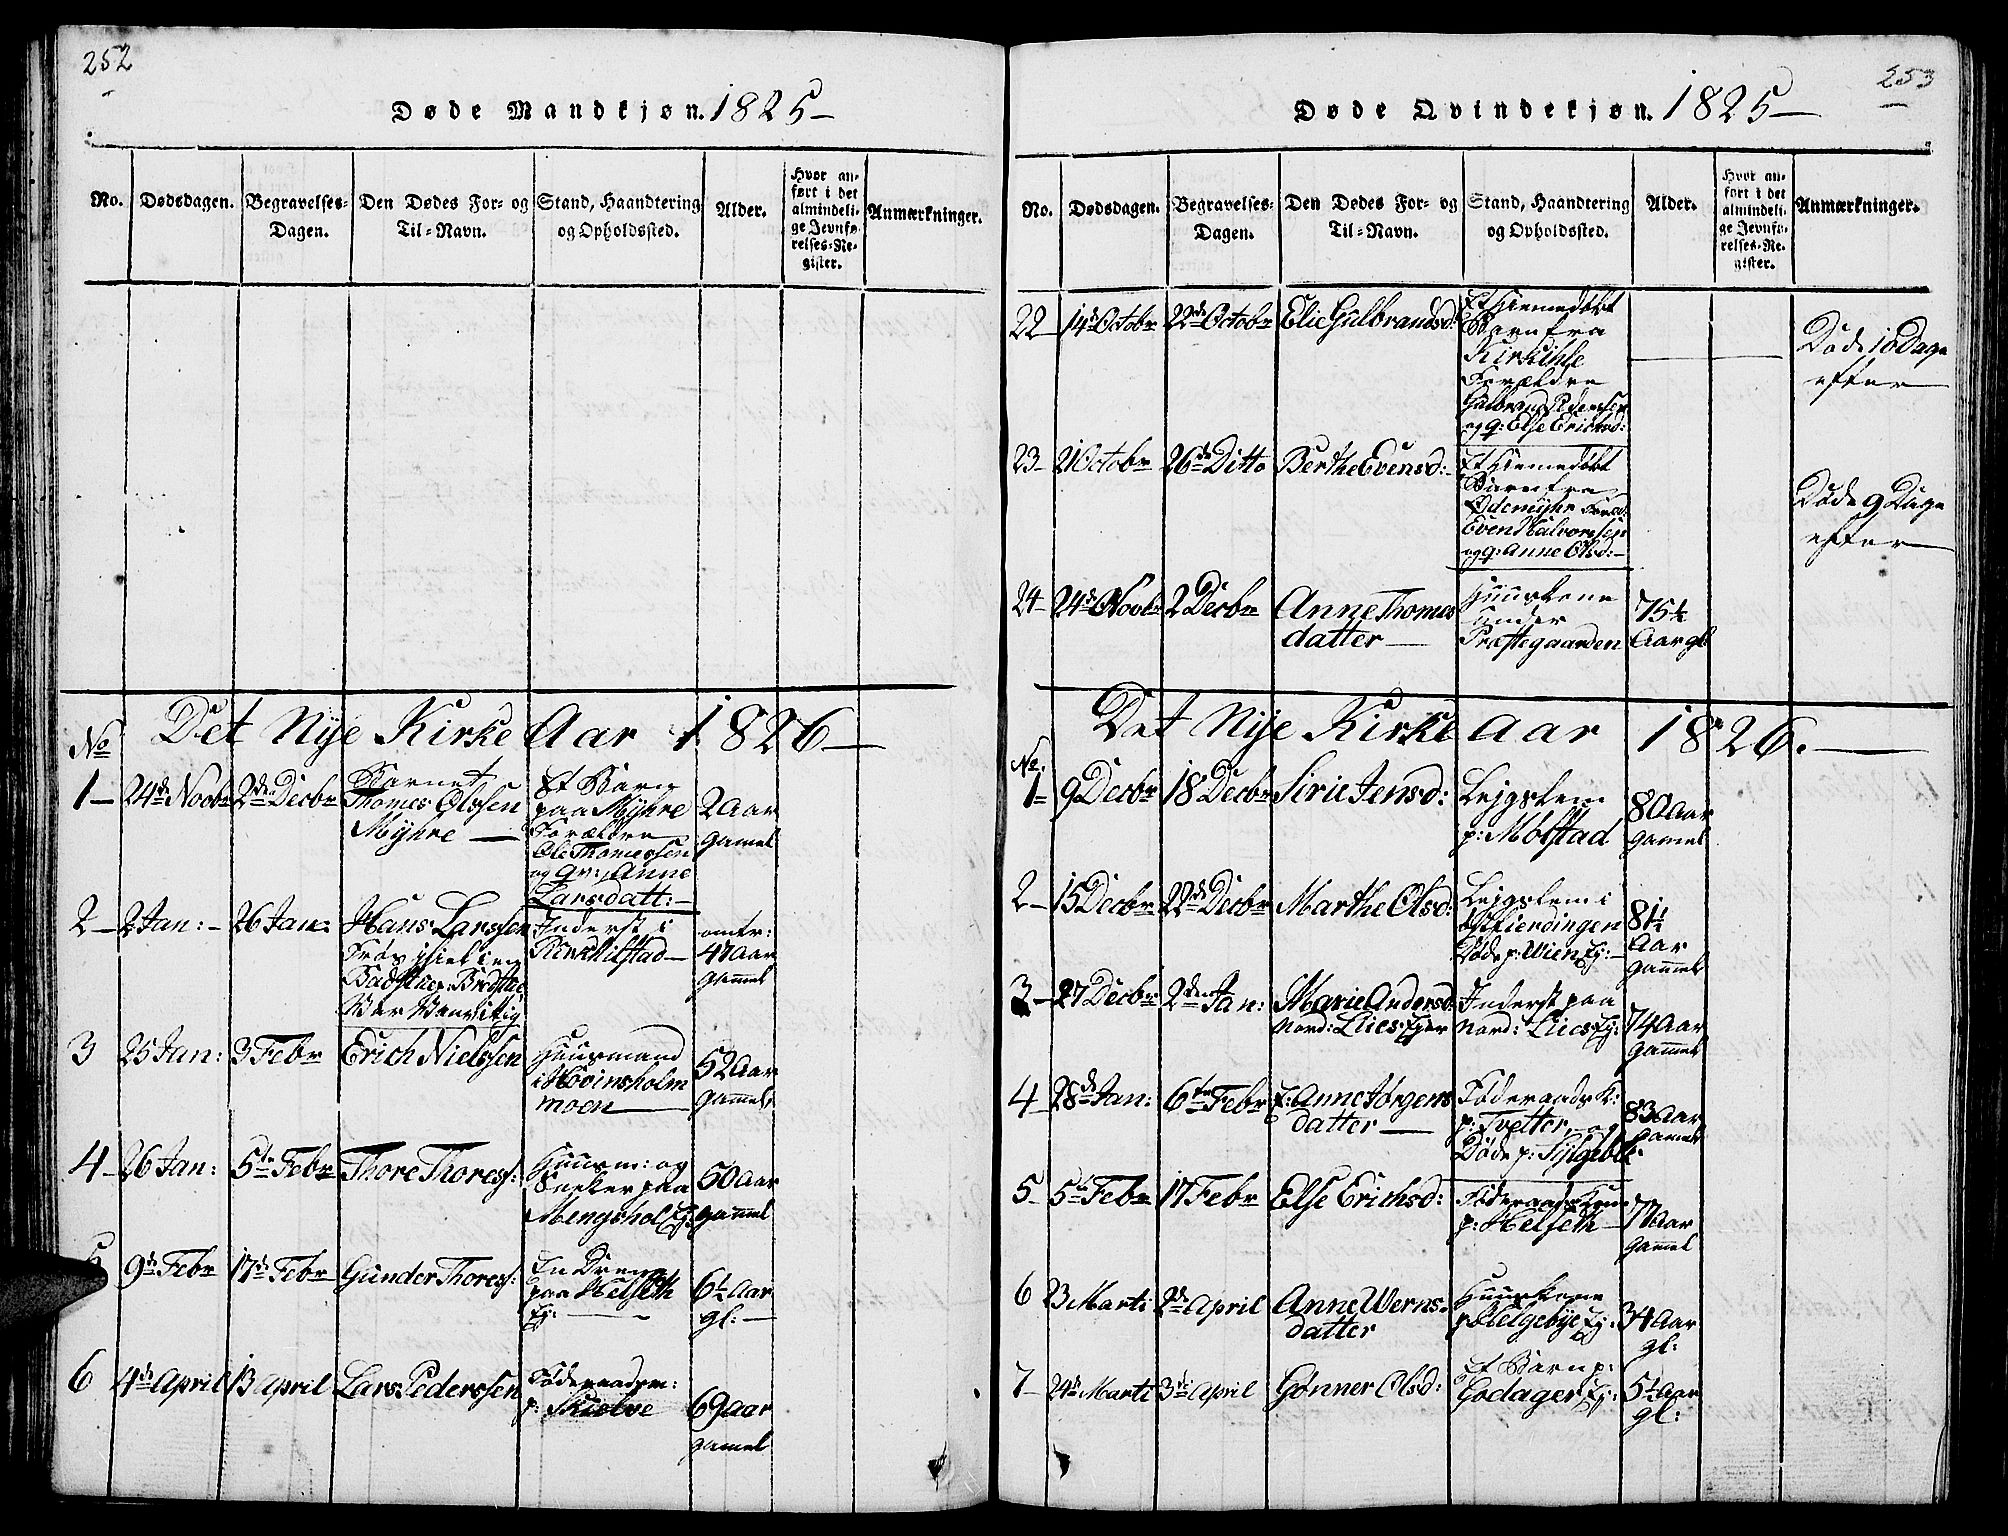 252
Døde Mandkjøn. 1825 —
No.
Dødsdagen.
Begravelses-
Dagen.
Den Dødes For- og
Til-Navn.
Stand, Haandtering
og Opholdssted.
Alder.
Hvor an-
ført i det
almindeli-
ge Jevnfø-
relses-Re-
gister.
Anmærkninger.
Det Nye Kirke Aar 1826 —
No
1 —
24de Novbr
2den Decbr
Barnet
Thomes Olssen
Myhre —
Et Barn
paa Myhre
Forældre
Ole Thomessen
og Qv: Anne
Larsdatt: —
2 Aar
gamel
2 —
2 Jan: —
26 Jan:
Hans Larssen
Badstue p:
Var Vanvitig
Inderst i
omtr:
47 Aar
gammel
3
25 Jan:
3 Febr
Erich Nielssen
Huusmand
i Hovinsholm
moen —
52 Aar
Gammel
4 —
26 Jan:
5te Febr
Thore Thoress:
Huusm: og
Sneker paa
Mengshol Ej:
50 Aar
gammel
5
9de Febr
17de Febr
Gunder Thoress:
En Dreng
paa Helseth
Ej: —
6½ Aar
gl: —
6
4de April
13 April
Lars Pederssen
Føderaadsm:
p: Skielve
69 Aar
gamel
253
Døde Qvindekjøn. 1825 —
No.
Dødsdagen.
Begravelses-
Dagen.
Den Dødes For- og
Til-Navn.
Stand, Haandtering
og Opholdssted.
Alder.
Hvor an-
ført i det
almindeli-
ge Jevnfø-
relses-Re-
gister.
Anmærkninger.
22 —
14de Octobr
22de Octobr
Elie Gulbrandsd:
Et Hiemedøbt
Barn fra
Forældre
Gulbrand Pedersen
og q: Else Erichsd:
Døde 10 Dage
efter —
23 —
21 Octobr
26de Ditto
Berthe Evensd: —
Et Hiemedøbt
Barn fra
Ødemyhr Foræld:
Even Halvorssen
og q: Anne Olsd: —
Døde 9 Dage
efter —
24 —
24de Novbr
2 Decbr
Anne Thomes
datter —
Huuskone
under
Præstegaarden
75½
Aar gl
Det Nye Kirke Aar 1826. —
No.
1 —
9 Decbr
18 Decbr
Sirie Jensd:
Lejgslem
p: Mølstad
80 Aar
gamel
2 —
15 Decbr
22de Decbr
Marthe Olsd:
Lejgslem i
Østfierdingen
Døde p: Wien Ej: —
81½
Aar
gammel
3 —
27 Decbr
2den Jan:
Marie Andersd:
Nord: Lies Ejer
Inderst paa
Nord: Lies Ej:
74 Aar
gammel
4 —
28de Jan:
6te Febr
E: Anne Jørgens
datter —
Føderaadsk:
p: Tvetter og
Døde p:
83 Aar
Gamel
5 —
5te Febr
17 Febr
Else Erichsd:
Føderaadskone
p: Helseth —
77 Aar
gammel
6
23 Marti
2den April
Anne Werns-
datter
Huuskone
p: Helgebye Ej:
34 Aar
gl:
7 —
24de Marti
3die April
Gønner Olsd:
Et Barn p:
Godager Ej:
5½ Aar
gl: